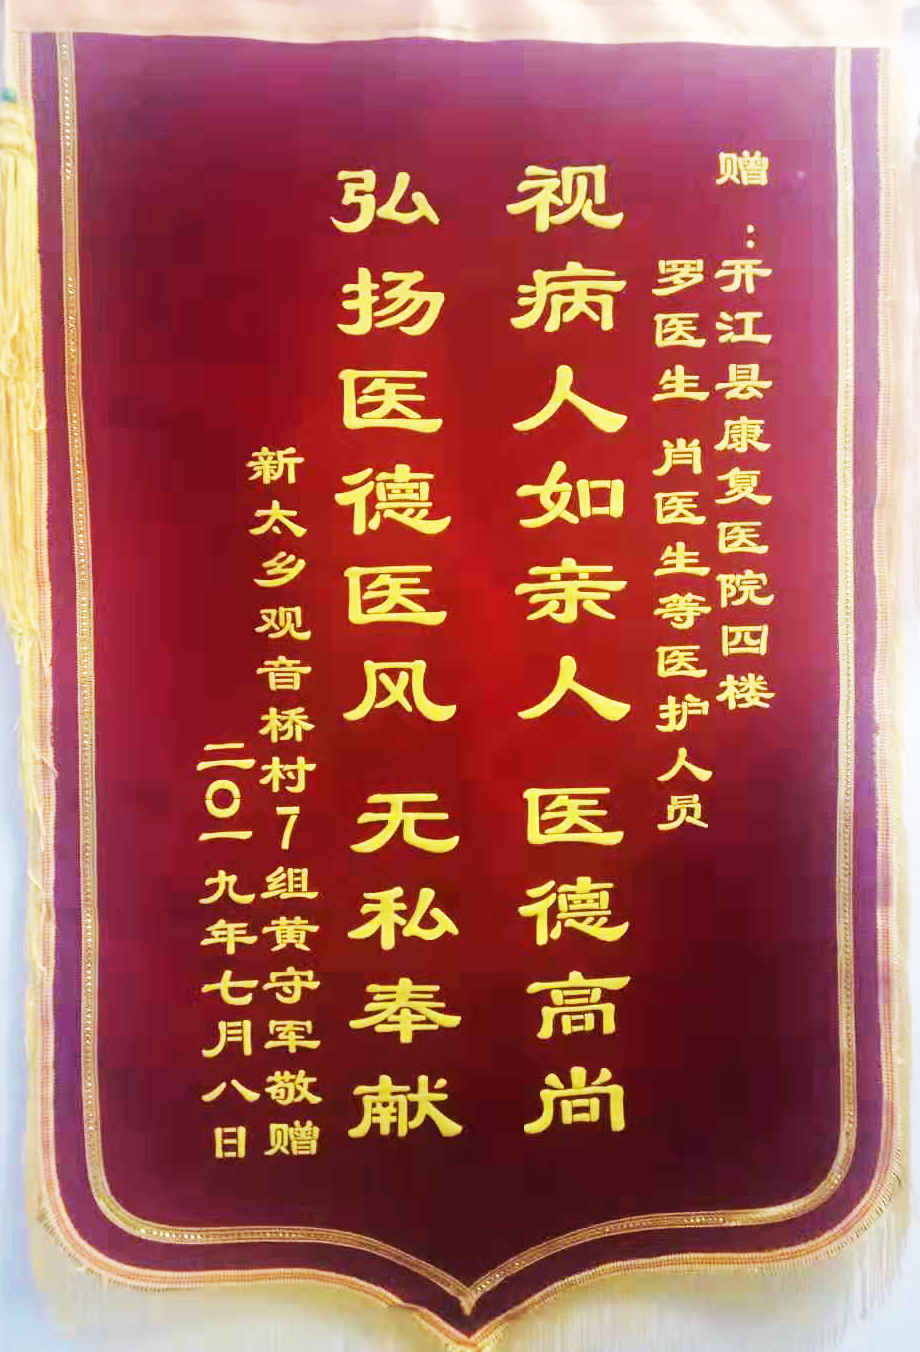 赠：开江县康复医院四楼
罗医生 肖医生等医护人员
视病人如亲人 医德高尚
弘扬医德医风 无私奉献
新太乡观音桥村7组黄守军敬赠
二〇一九年七月八日